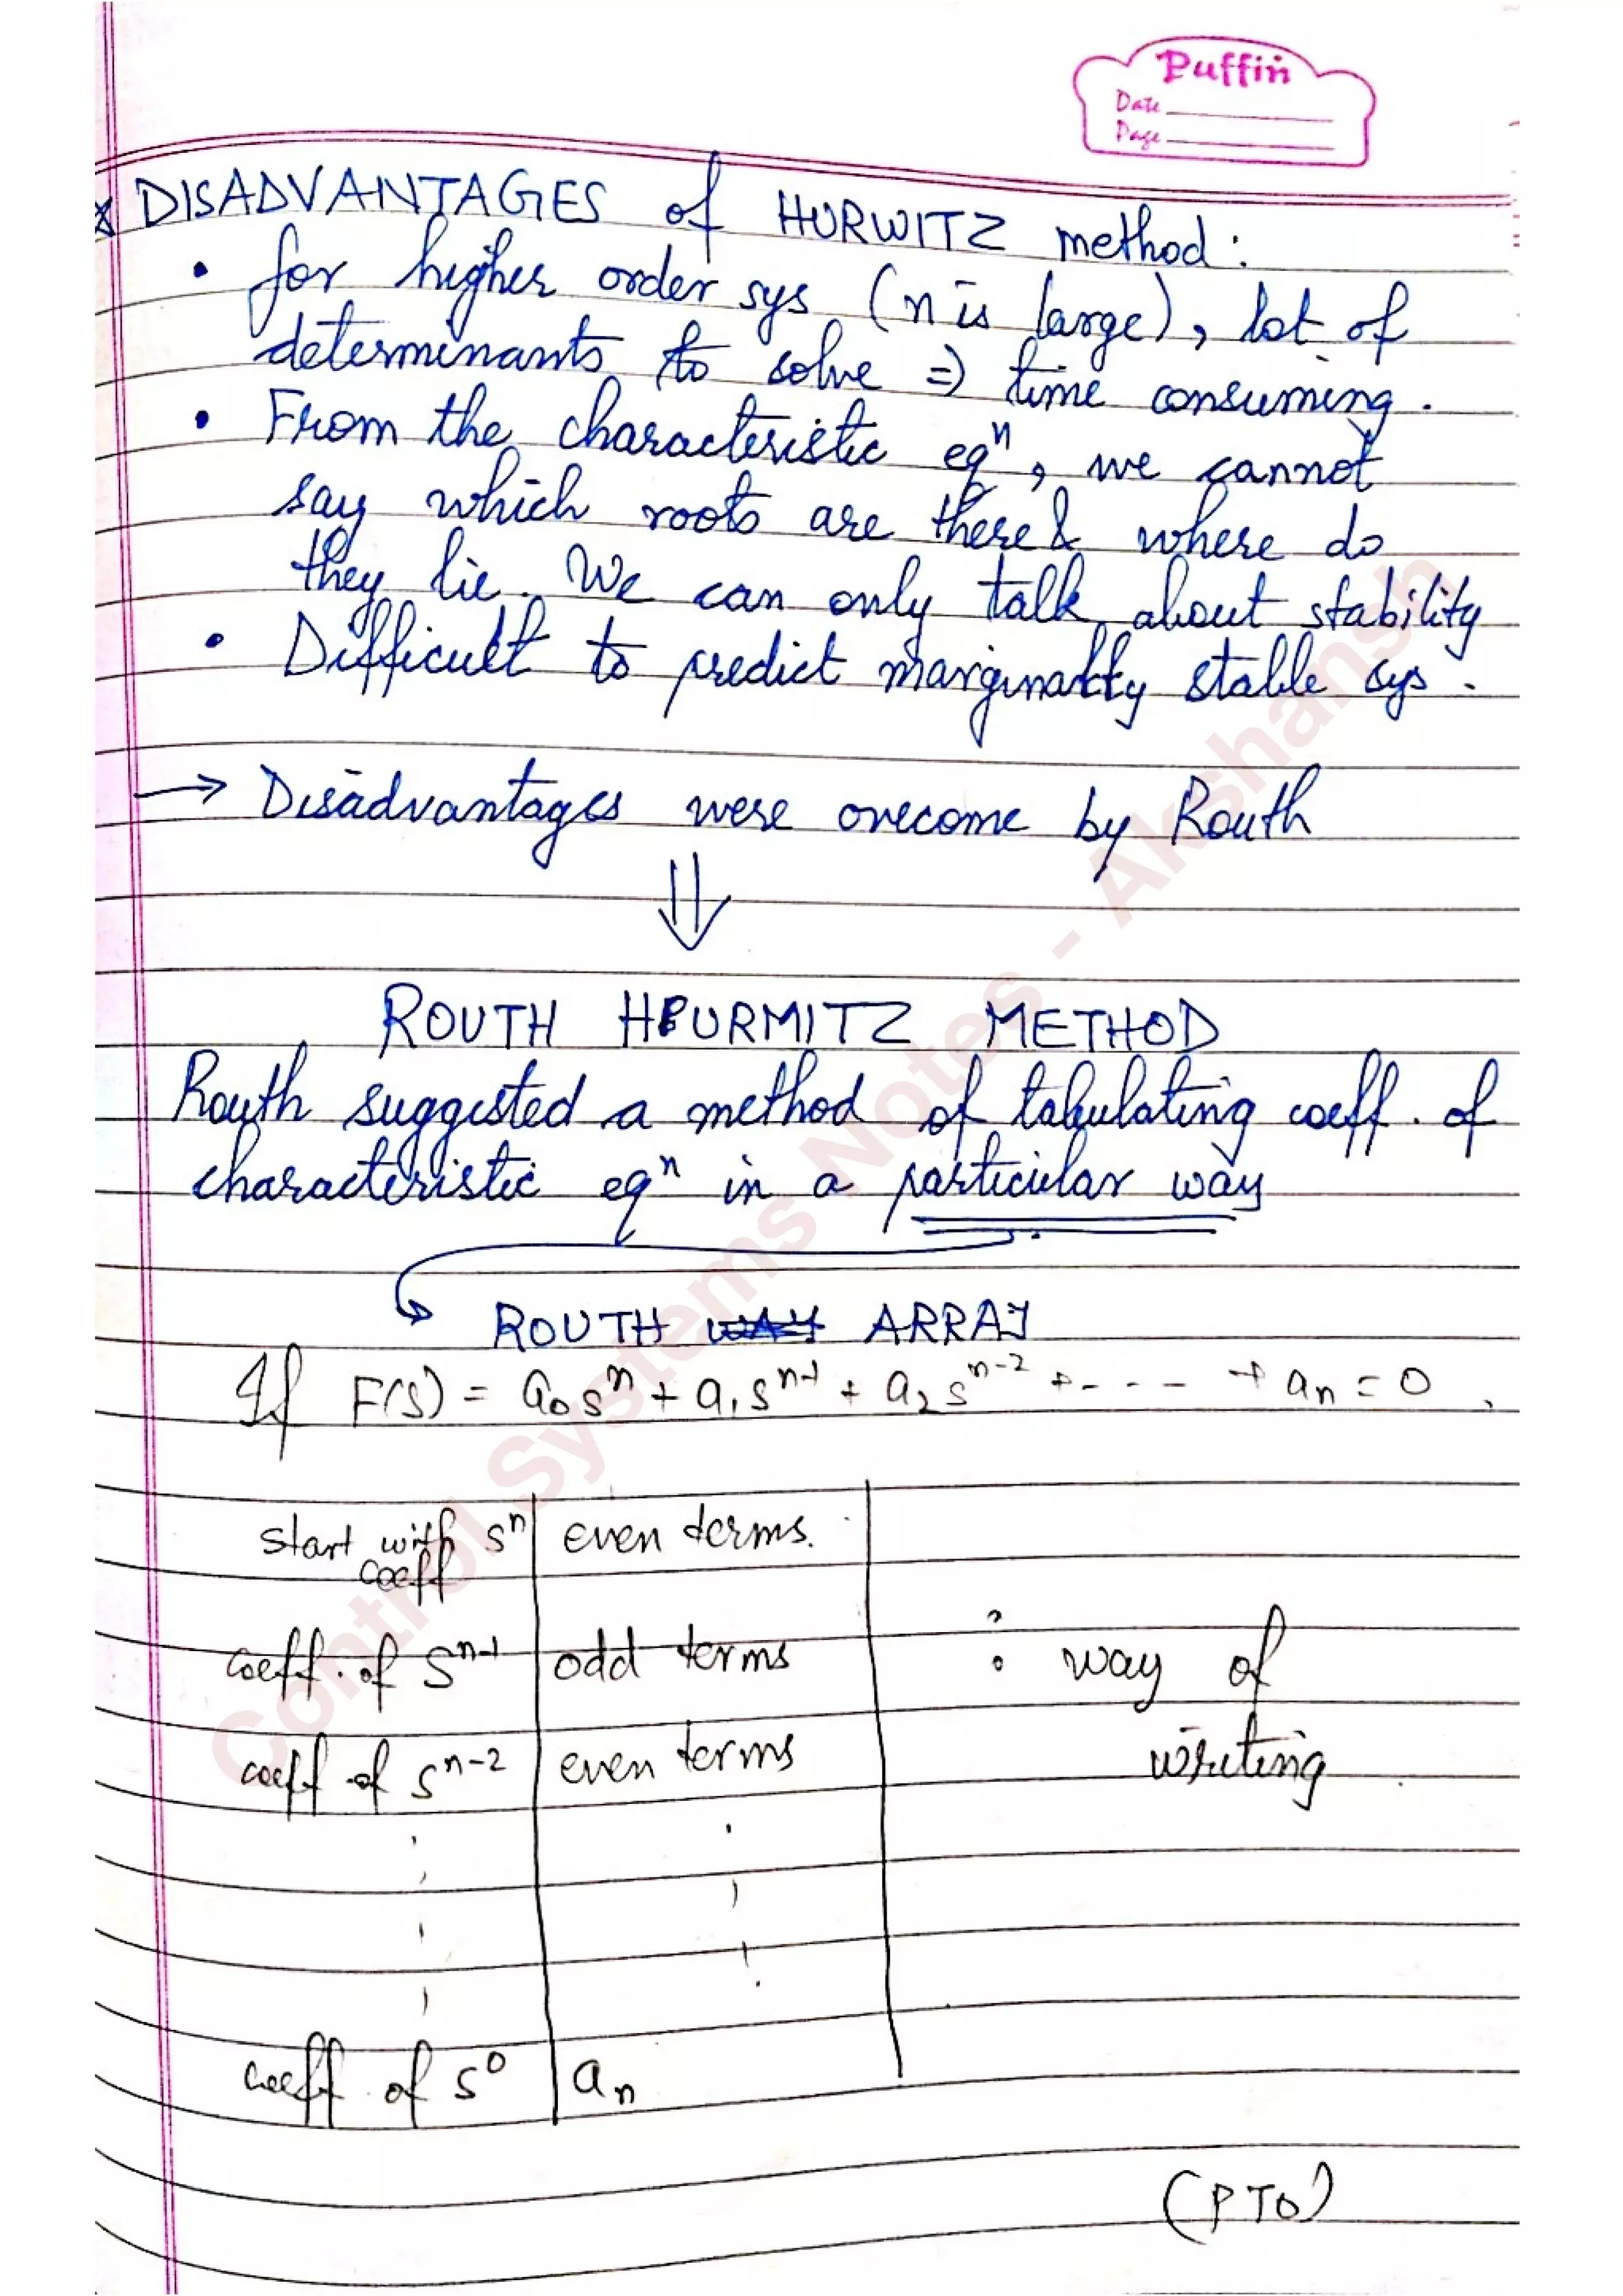 Puffin
Date
Page
DISADVANTAGES of HURWITZ method:
• for higher order sys (n is large), lot of
determinants to solve => time consuming.
• From the characteristic eqⁿ, we cannot
say which roots are there & where do
they lie. We can only talk about stability
• Difficult to predict marginally stable sys.
→ Disadvantages were overcome by Routh
⇓
ROUTH HURMITZ METHOD
Routh suggested a method of tabulating coeff. of
characteristic eqⁿ in a particular way
ROUTH WAY ARRAY
If F(s) = a₀sⁿ + a₁sⁿ⁻¹ + a₂sⁿ⁻² + - - - - + aₙ = 0,
start with sⁿ even terms.
coeff
coeff. of sⁿ⁻¹ odd terms : way of
coeff of sⁿ⁻² even terms writing
coeff of s⁰ aₙ
(PTO)
Control Systems Notes - Akshansh